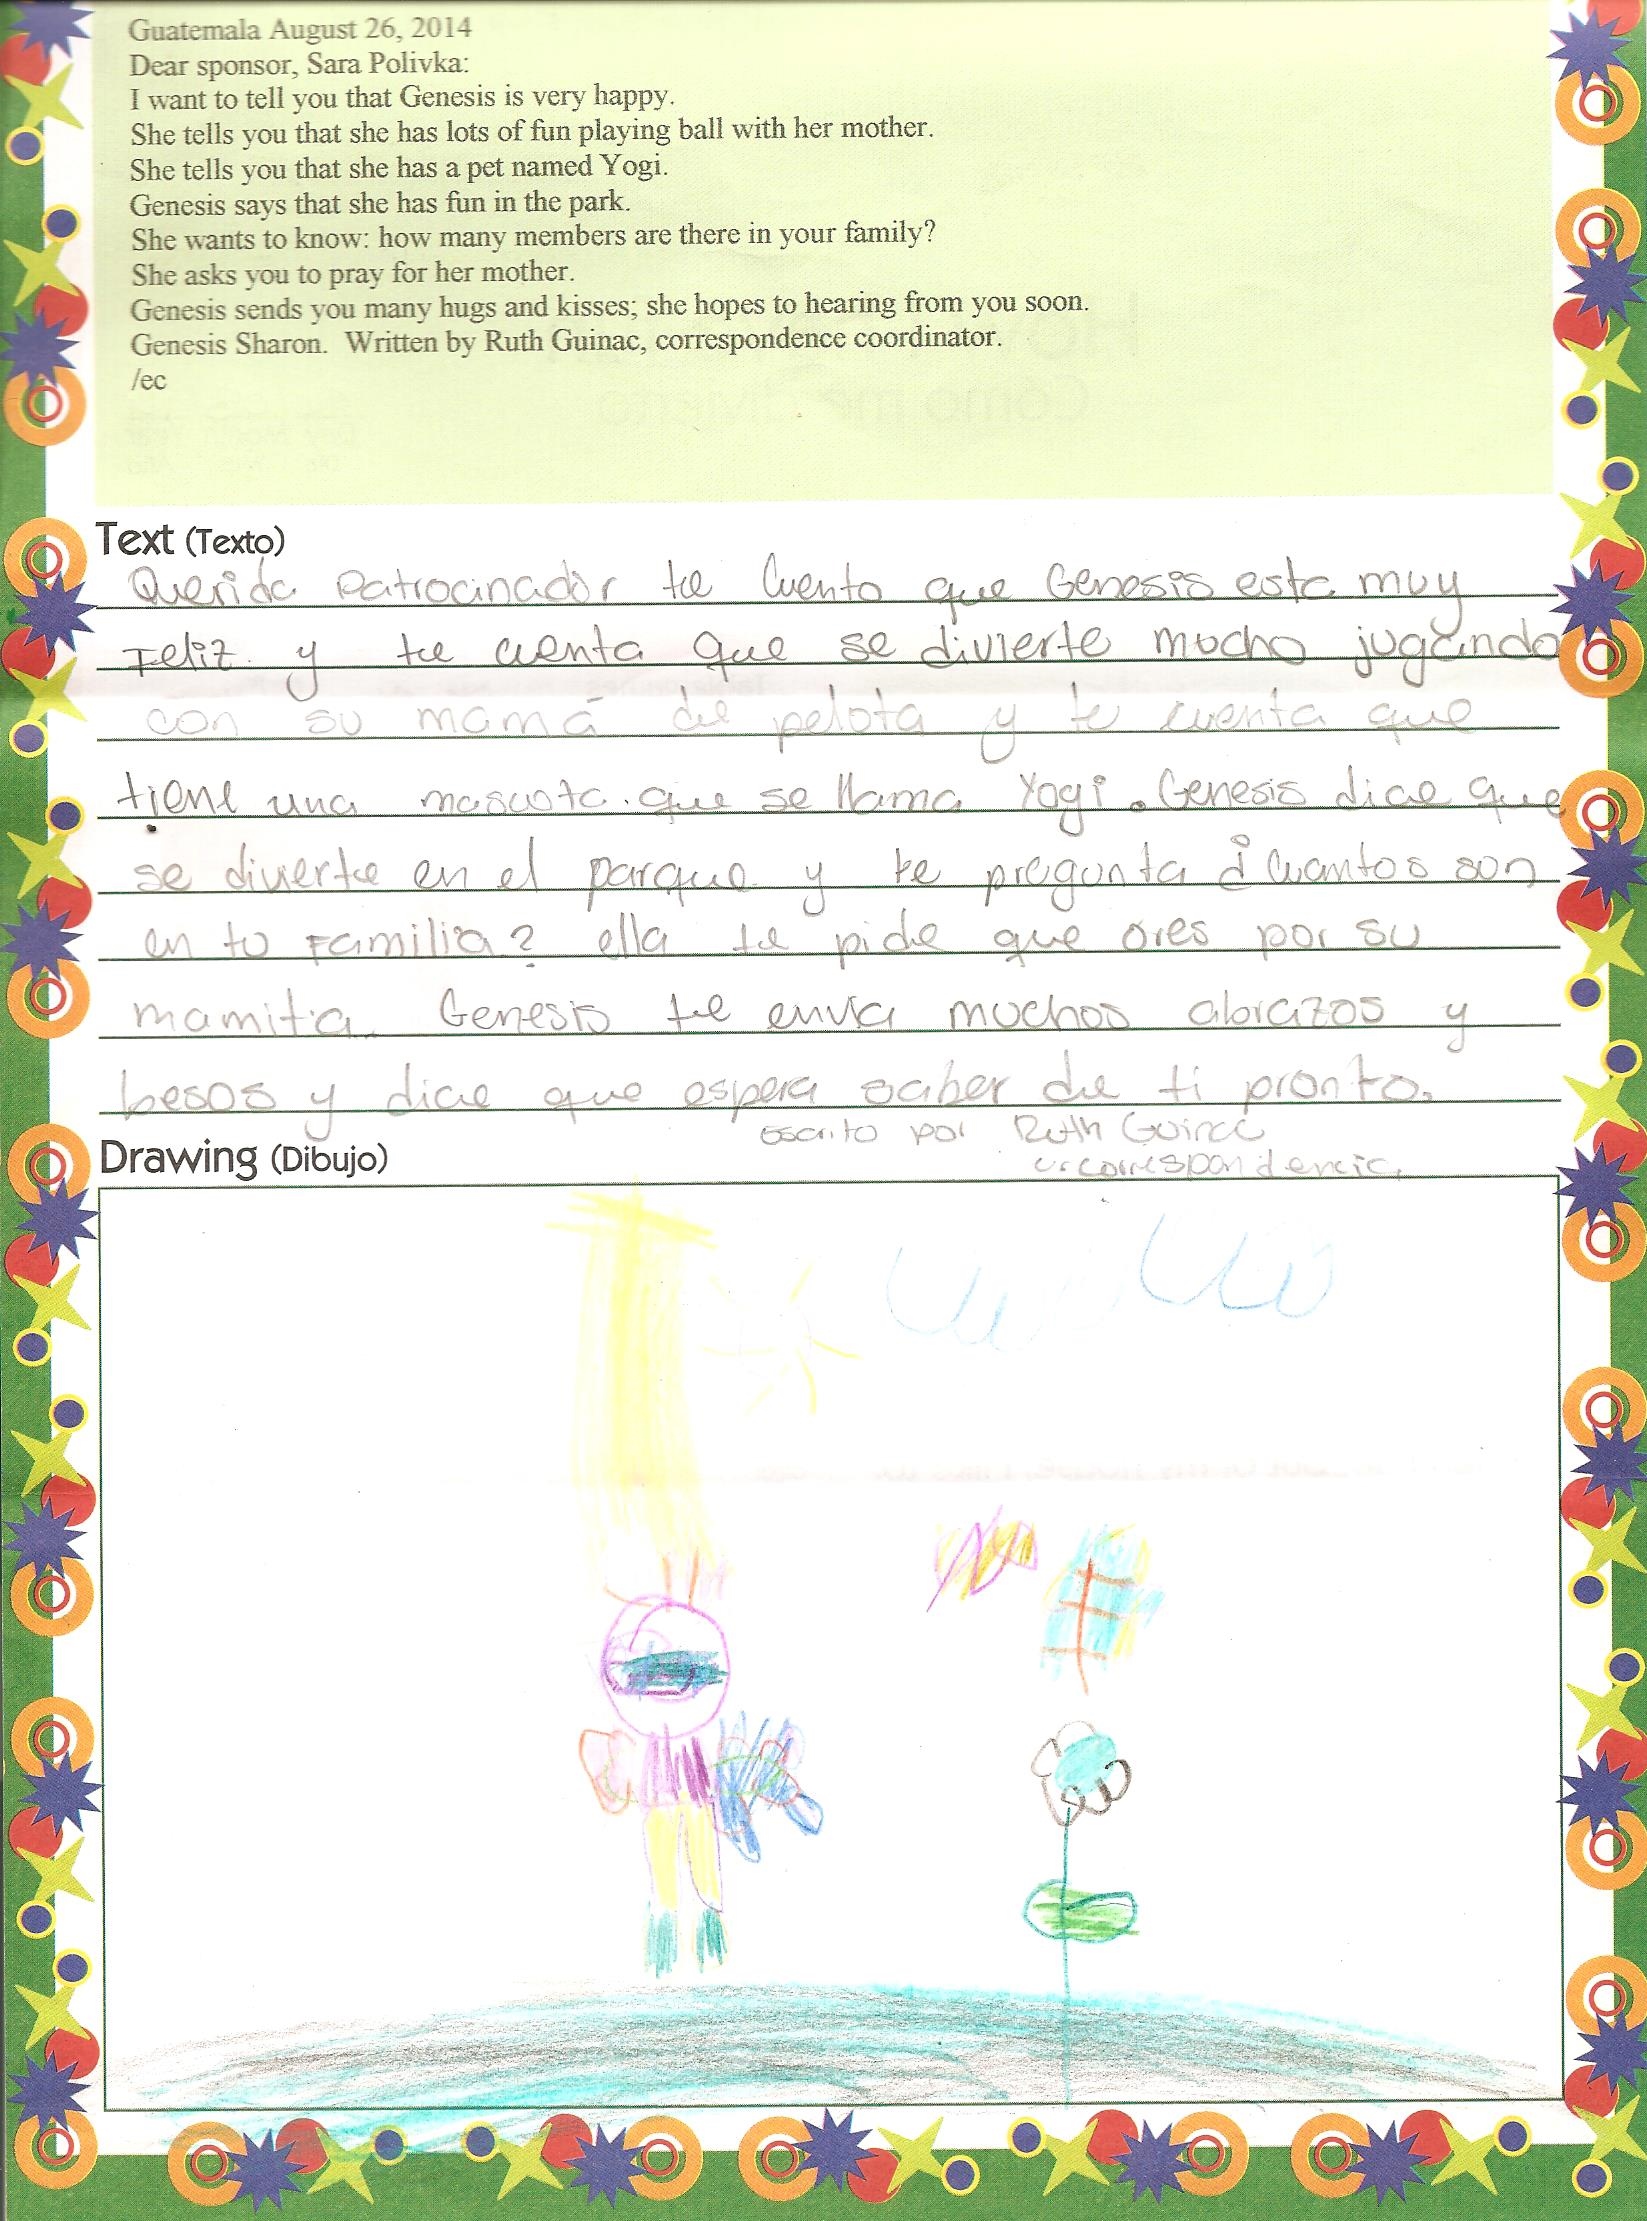 Guatemala August 26, 2014
Dear sponsor, Sara Polivka:
I want to tell you that Genesis is very happy.
She tells you that she has lots of fun playing ball with her mother.
She tells you that she has a pet named Yogi.
Genesis says that she has fun in the park.
She wants to know: how many members are there in your family?
She asks you to pray for her mother.
Genesis sends you many hugs and kisses; she hopes to hearing from you soon.
Genesis Sharon.  Written by Ruth Guinac, correspondence coordinator.
/ec
Text (Texto)
Querida Patrocinador te cuento que Genesis esta muy
Feliz y te cuenta que se divierte mucho jugando
con su mamá de pelota y te cuenta que
tiene una mascota. que se llama Yogi. Genesis dice que
se divierte en el parque y te pregunta ¿Cuantos son
en tu Familia? ella te pide que ores por su
mamita. Genesis te envía muchos abrazos y
besos y dice que espera saber de ti pronto.
Escrito por Ruth Guinac
correspondencia
Drawing (Dibujo)